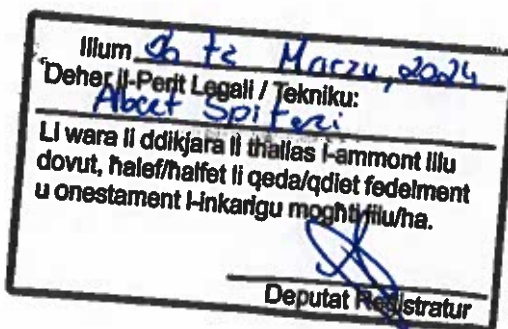 Illum Marzu, 2024
Deher il-Perit Legali / Tekniku:
Spiteri
Li wara li ddikjara li tħallas l-ammont lilu
dovut, ħalef/ħalfet li qeda/qdiet fedelment
u onestament l-inkarigu mogħti lilu/ha.
Deputat Reġistratur